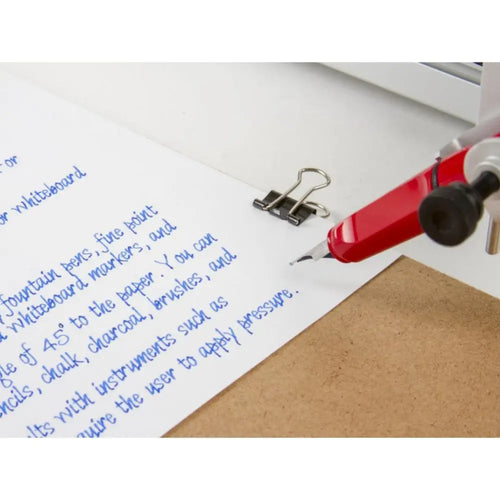 or
or whiteboard
fountain pens, fine point
whiteboard markers, and
of 45° to the paper. You can
chalk, charcoal, brushes, and
with instruments such as
the user to apply pressure.